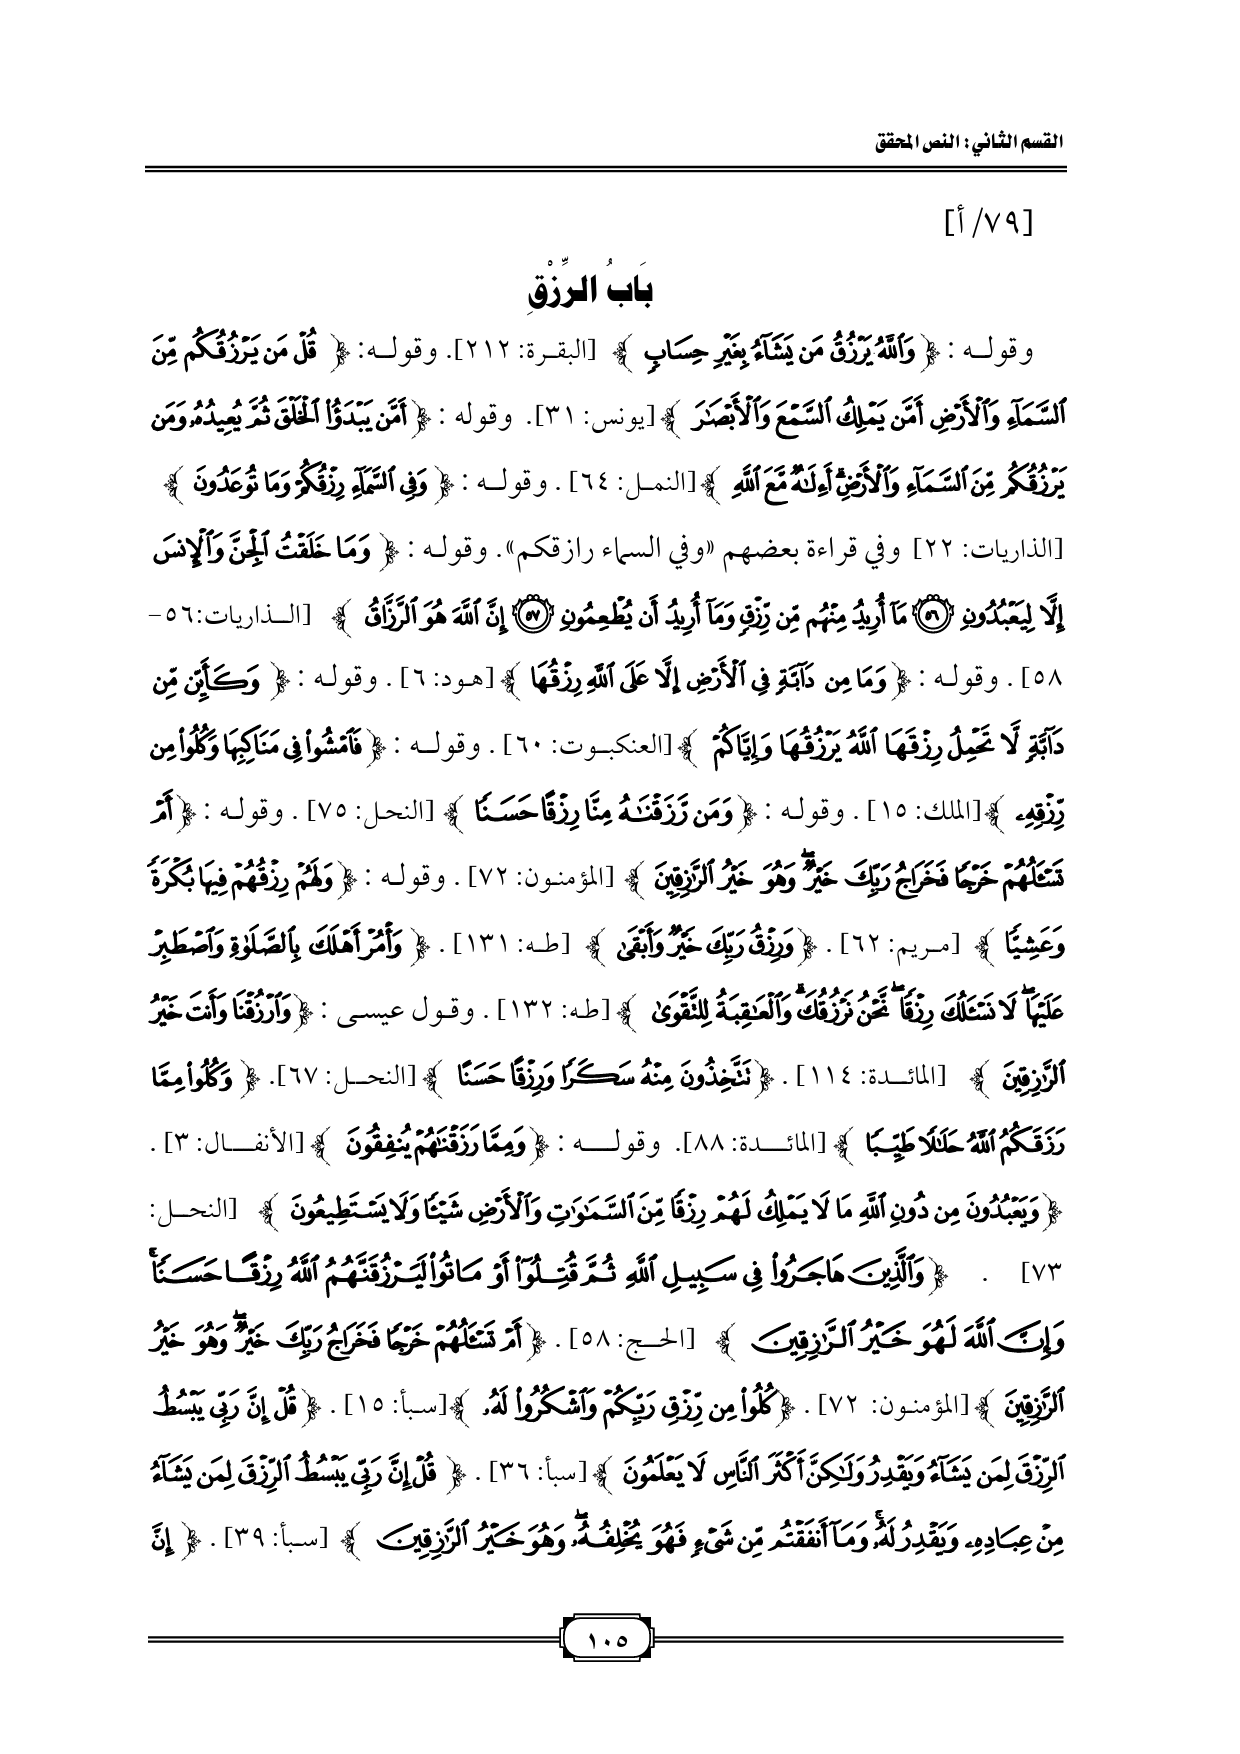 القسم الثاني: النص المحقق
[٧٩/ أ]
بَابُ الرِّزْقِ
وقولــه : ﴿ وَٱللَّهُ يَرْزُقُ مَن يَشَآءُ بِغَيْرِ حِسَابٍ ﴾ [البقــرة: ٢١٢]. وقولــه: ﴿ قُلْ مَن يَرْزُقُكُم مِّنَ
ٱلسَّمَآءِ وَٱلْأَرْضِ أَمَّن يَمْلِكُ ٱلسَّمْعَ وَٱلْأَبْصَٰرَ ﴾[يونس: ٣١]. وقوله : ﴿ أَمَّن يَبْدَؤُا۟ ٱلْخَلْقَ ثُمَّ يُعِيدُهُۥ وَمَن
يَرْزُقُكُم مِّنَ ٱلسَّمَآءِ وَٱلْأَرْضِ ۗ أَءِلَٰهٌ مَّعَ ٱللَّهِ ﴾[النمـل: ٦٤] . وقولـه : ﴿ وَفِى ٱلسَّمَآءِ رِزْقُكُمْ وَمَا تُوعَدُونَ ﴾
[الذاريات: ٢٢] وفي قراءة بعضهم «وفي السماء رازقكم». وقولـه : ﴿ وَمَا خَلَقْتُ ٱلْجِنَّ وَٱلْإِنسَ
إِلَّا لِيَعْبُدُونِ ۝٥٦ مَآ أُرِيدُ مِنْهُم مِّن رِّزْقٍ وَمَآ أُرِيدُ أَن يُطْعِمُونِ ۝٥٧ إِنَّ ٱللَّهَ هُوَ ٱلرَّزَّاقُ ﴾ [الــذاريات:٥٦-
٥٨] . وقولـه : ﴿ وَمَا مِن دَآبَّةٍ فِى ٱلْأَرْضِ إِلَّا عَلَى ٱللَّهِ رِزْقُهَا ﴾[هـود: ٦] . وقولـه : ﴿ وَكَأَيِّن مِّن
دَآبَّةٍ لَّا تَحْمِلُ رِزْقَهَا ٱللَّهُ يَرْزُقُهَا وَإِيَّاكُمْ ﴾[العنكبـوت: ٦٠] . وقولــه : ﴿ فَٱمْشُوا۟ فِى مَنَاكِبِهَا وَكُلُوا۟ مِن
رِّزْقِهِۦ ﴾[الملك: ١٥] . وقولـه : ﴿ وَمَن رَّزَقْنَٰهُ مِنَّا رِزْقًا حَسَنًا ﴾ [النحل: ٧٥] . وقولـه : ﴿ أَمْ
تَسْـَٔلُهُمْ خَرْجًا فَخَرَاجُ رَبِّكَ خَيْرٌ ۖ وَهُوَ خَيْرُ ٱلرَّٰزِقِينَ ﴾ [المؤمنـون: ٧٢] . وقولـه : ﴿ وَلَهُمْ رِزْقُهُمْ فِيهَا بُكْرَةً
وَعَشِيًّا ﴾ [مـريم: ٦٢] . ﴿ وَرِزْقُ رَبِّكَ خَيْرٌ وَأَبْقَىٰ ﴾ [طـه: ١٣١] . ﴿ وَأْمُرْ أَهْلَكَ بِٱلصَّلَوٰةِ وَٱصْطَبِرْ
عَلَيْهَا ۖ لَا نَسْـَٔلُكَ رِزْقًا ۖ نَّحْنُ نَرْزُقُكَ ۗ وَٱلْعَٰقِبَةُ لِلتَّقْوَىٰ ﴾[طه: ١٣٢] . وقـول عيسـى : ﴿ وَٱرْزُقْنَا وَأَنتَ خَيْرُ
ٱلرَّٰزِقِينَ ﴾ [المائــدة: ١١٤] . ﴿ تَتَّخِذُونَ مِنْهُ سَكَرًا وَرِزْقًا حَسَنًا ﴾[النحـل: ٦٧]. ﴿ وَكُلُوا۟ مِمَّا
رَزَقَكُمُ ٱللَّهُ حَلَٰلًا طَيِّبًا ﴾[المائــدة: ٨٨]. وقولــــه : ﴿ وَمِمَّا رَزَقْنَٰهُمْ يُنفِقُونَ ﴾[الأنفـــال: ٣] .
﴿ وَيَعْبُدُونَ مِن دُونِ ٱللَّهِ مَا لَا يَمْلِكُ لَهُمْ رِزْقًا مِّنَ ٱلسَّمَٰوَٰتِ وَٱلْأَرْضِ شَيْـًٔا وَلَا يَسْتَطِيعُونَ ﴾ [النحــل:
٧٣] . ﴿ وَٱلَّذِينَ هَاجَرُوا۟ فِى سَبِيلِ ٱللَّهِ ثُمَّ قُتِلُوٓا۟ أَوْ مَاتُوا۟ لَيَرْزُقَنَّهُمُ ٱللَّهُ رِزْقًا حَسَنًا ۚ
وَإِنَّ ٱللَّهَ لَهُوَ خَيْرُ ٱلرَّٰزِقِينَ ﴾ [الحــج: ٥٨] . ﴿ أَمْ تَسْـَٔلُهُمْ خَرْجًا فَخَرَاجُ رَبِّكَ خَيْرٌ ۖ وَهُوَ خَيْرُ
ٱلرَّٰزِقِينَ ﴾[المؤمنـون: ٧٢] . ﴿ كُلُوا۟ مِن رِّزْقِ رَبِّكُمْ وَٱشْكُرُوا۟ لَهُۥ ﴾[سـبأ: ١٥] . ﴿ قُلْ إِنَّ رَبِّى يَبْسُطُ
ٱلرِّزْقَ لِمَن يَشَآءُ وَيَقْدِرُ وَلَٰكِنَّ أَكْثَرَ ٱلنَّاسِ لَا يَعْلَمُونَ ﴾[سبأ: ٣٦] . ﴿ قُلْ إِنَّ رَبِّى يَبْسُطُ ٱلرِّزْقَ لِمَن يَشَآءُ
مِنْ عِبَادِهِۦ وَيَقْدِرُ لَهُۥ ۚ وَمَآ أَنفَقْتُم مِّن شَىْءٍ فَهُوَ يُخْلِفُهُۥ ۖ وَهُوَ خَيْرُ ٱلرَّٰزِقِينَ ﴾ [سـبأ: ٣٩] . ﴿ إِنَّ
١٠٥